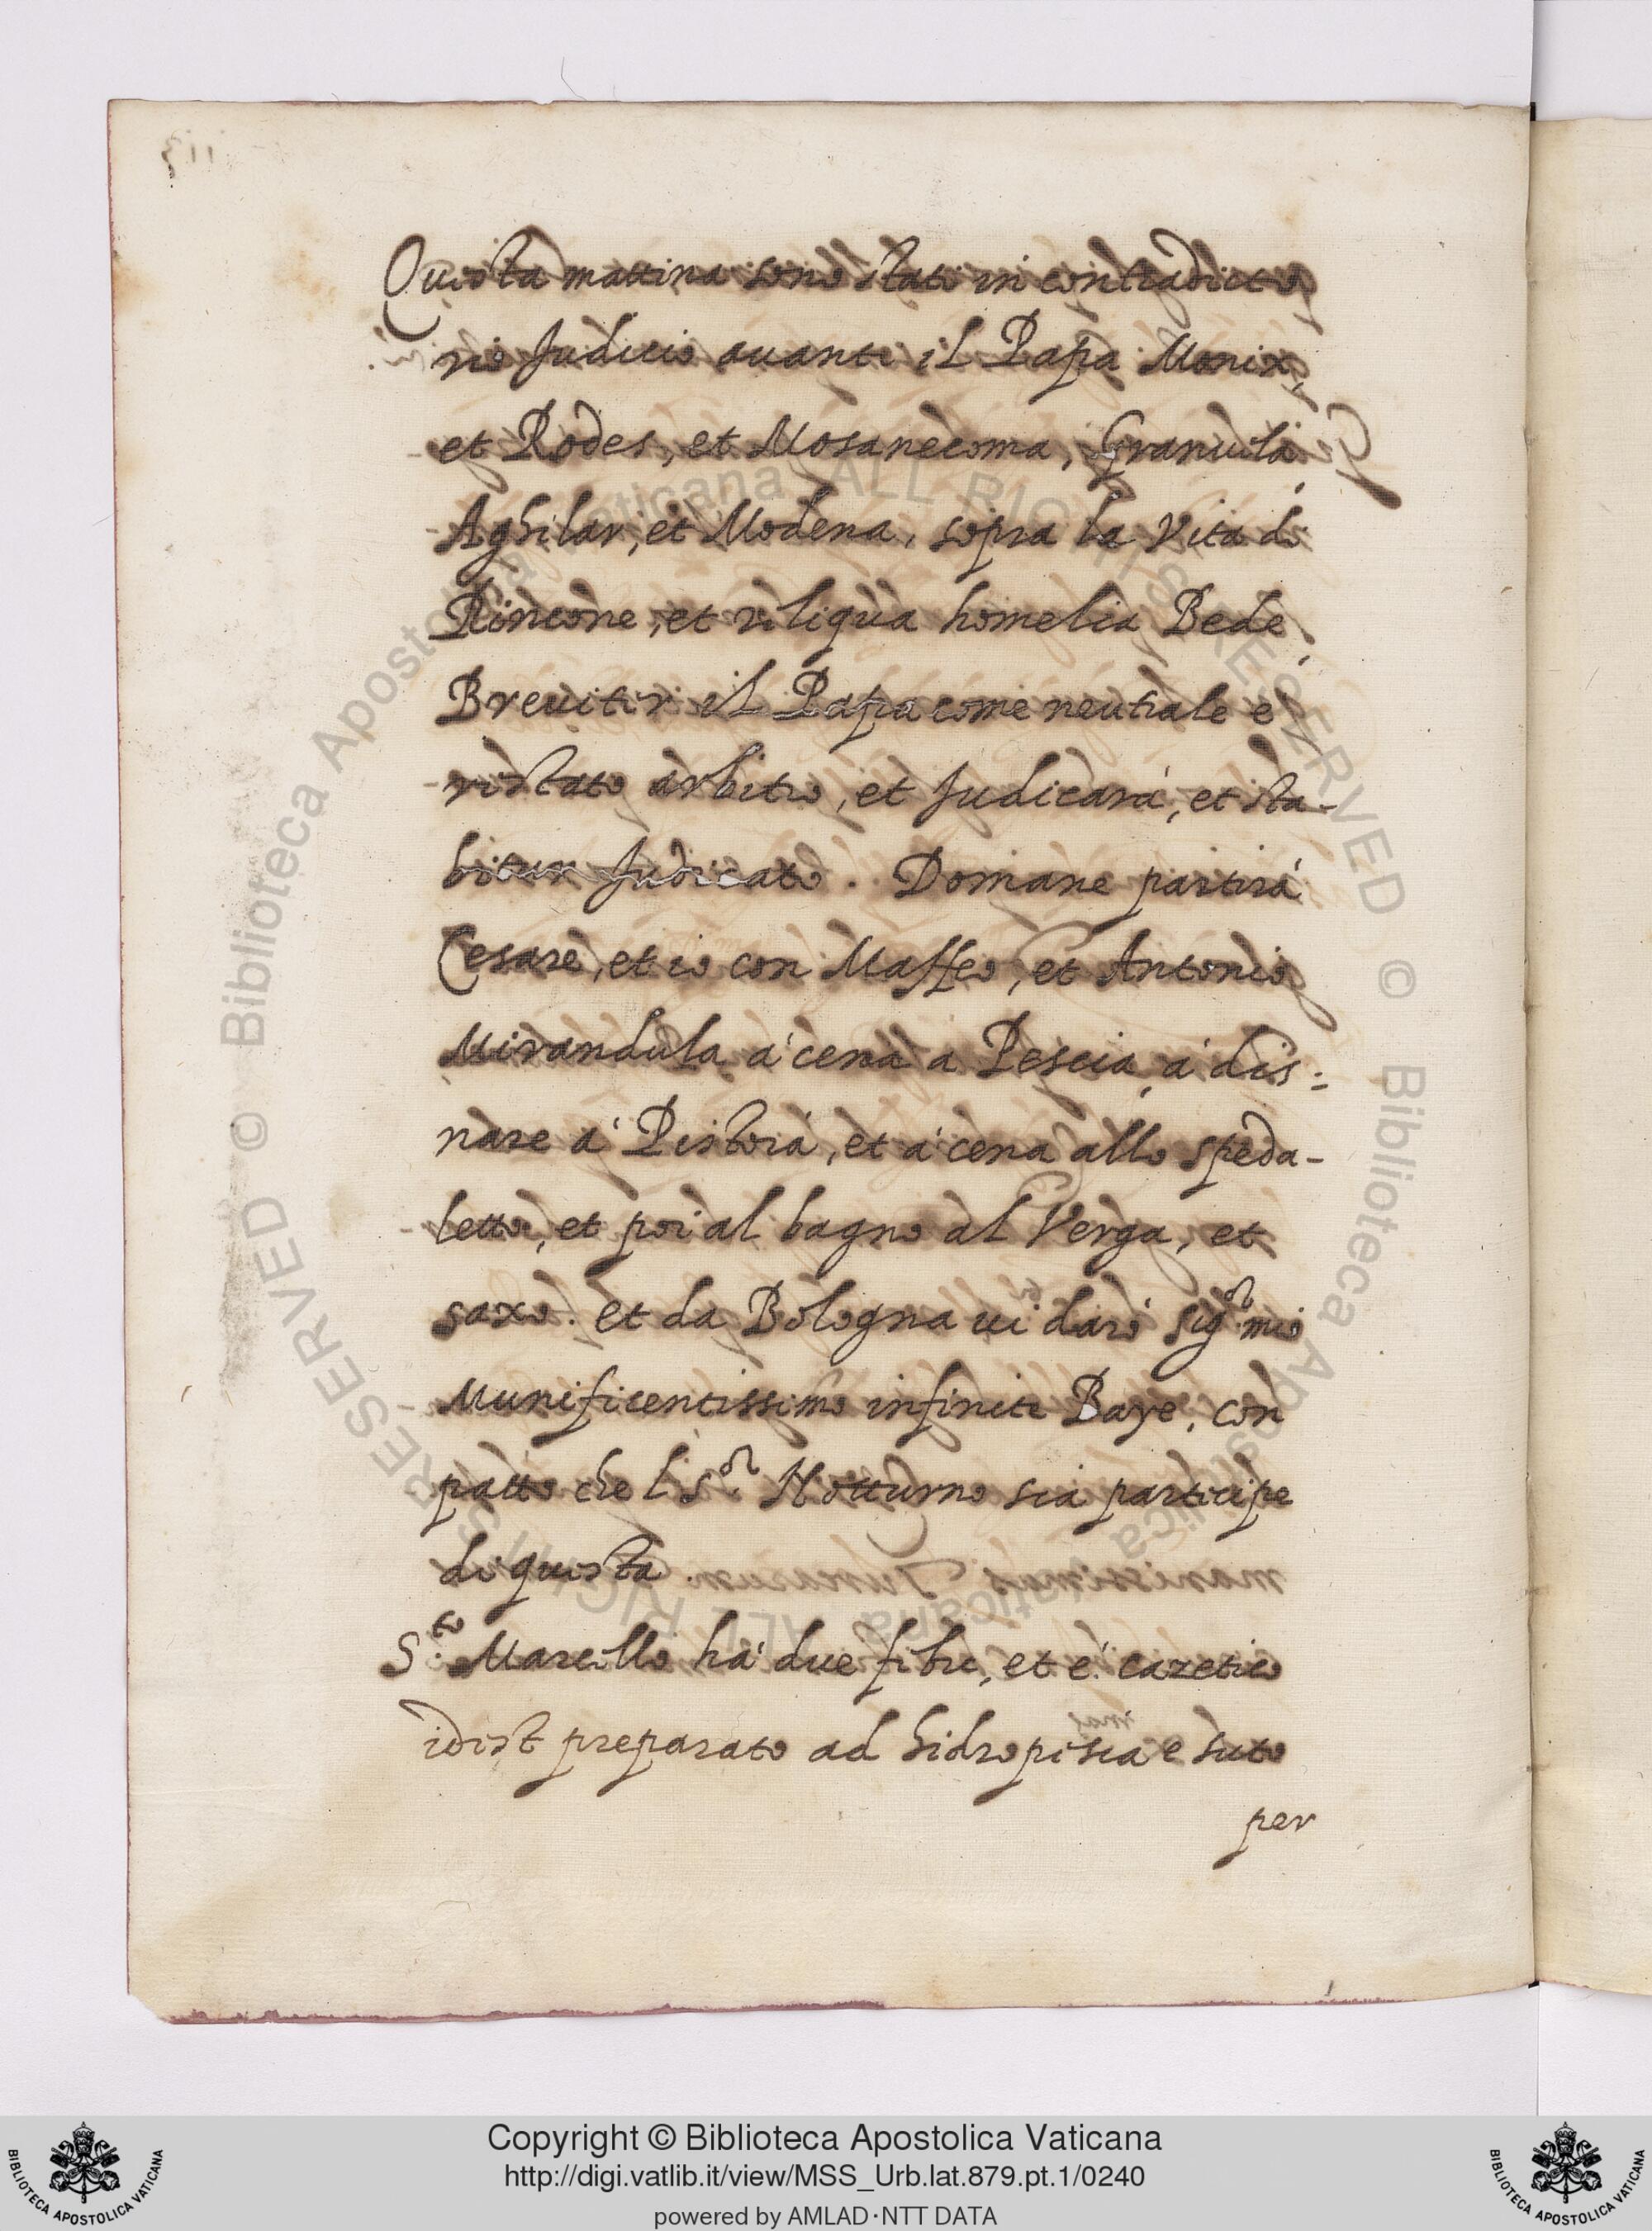 Questa mattina sono stati in contradicto
rio Judicio auanti il Papa Monix,
et Rodes, et Mosanecoma, Granuila
Aghilar, et Modena, sopra la Vita di
Rincone, et reliqua homelia Bede,
Breuiter il Papa come neutrale è
restato arbitro, et Judicarà, et sta-
bitur Judicato. Domane partirà
Cesare, et io con Maffeo, et Antonio
Mirandula à cena a Pescia, à dis-
nare à Pistoia, et à cena allo speda-
letto, et poi al bagno al Verga, et
saxo. et da Bologna ui darò Sig.or mio
Munificentissimo infinite Baye, con
patto che'l S.or Notturno sia participe
di questa.
S.to Marcello há due febre, et é cazetico
idest preparato ad hidropisia e suto
per
Copyright © Biblioteca Apostolica Vaticana
http://digi.vatlib.it/view/MSS_Urb.lat.879.pt.1/0240
powered by AMLAD·NTT DATA
BIBLIOTECA APOSTOLICA VATICANA
BIBLIOTECA APOSTOLICA VATICANA